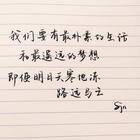 我们要有最朴素的生活
和最遥远的梦想
即使明日天寒地冻
路远马亡
Sjn